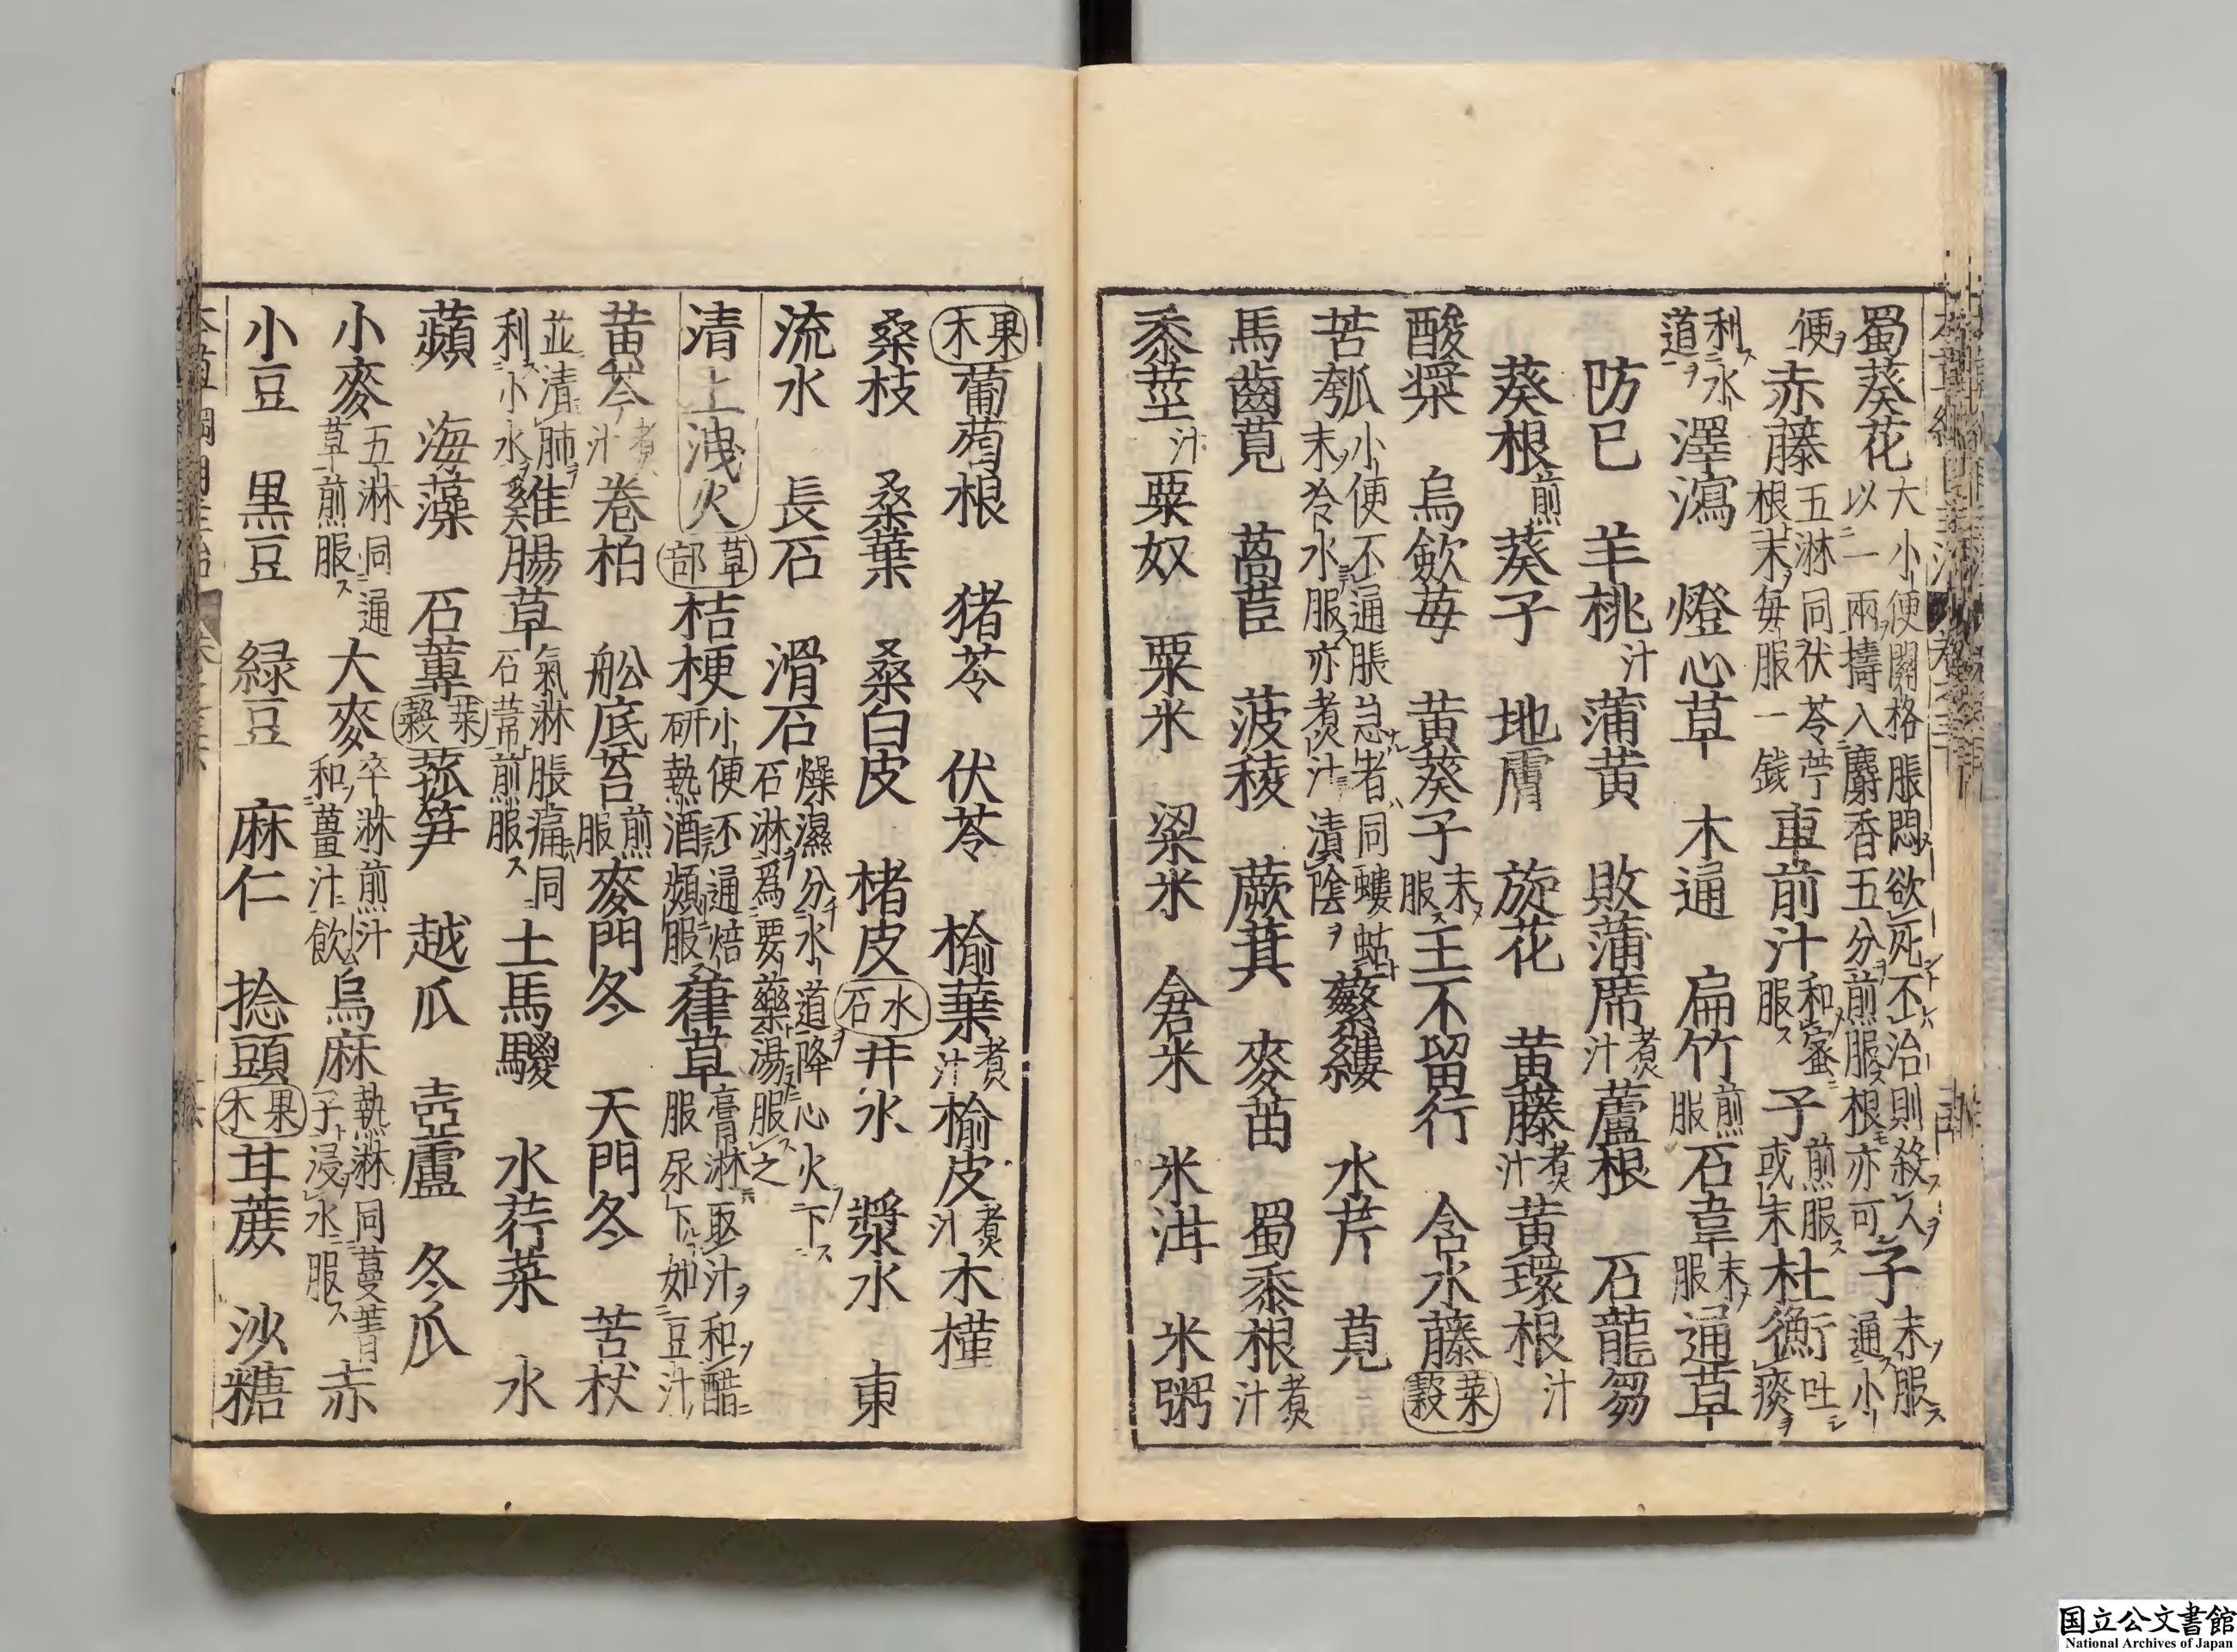 蜀葵花大小便關格脹悶欲死不治則殺人以一兩擣入麝香五分煎服根亦可子末服通小
便赤藤五淋同茯苓苧根末每服一錢車前汁和蜜服子煎服或末杜衡吐痰
利水道澤瀉 燈心草 木通 扁竹煎服石韋末服通草
防已 羊桃汁蒲黄 敗蒲席煮汁蘆根 石龍芻
葵根煎葵子 地膚 旋花 黄藤煮汁黄環根汁
酸漿 烏蘞苺 黄葵子末服王不留行 含水藤菜穀
苦瓠小便不通脹急者同螻蛄末冷水服亦煮汁漬陰蘩縷 水芹 莧
馬齒莧 萵苣 菠稜 蕨萁 麥苗 蜀黍根煮汁
黍莖汁粟奴 粟米 粱米 倉米 米泔 米粥
果木葡萄根 猪苓 伏苓 榆葉煮汁榆皮煮汁木槿
桑枝 桑葉 桑白皮 楮皮水石井水 漿水 東
流水 長石 滑石燥濕分水道降心火下石淋爲要藥湯服之
清上洩火草部桔梗小便不通焙研熱酒頻服葎草膏淋取汁和醋服尿下如豆汁
黄芩煮汁卷柏 舩底苔煎服麥門冬 天門冬 苦杖
並清肺利小水雞腸草氣淋脹痛同石葦煎服土馬騣 水荇菜 水
蘋 海藻 石蓴菜穀菰笋 越瓜 壺盧 冬瓜
小麥五淋同通草煎服大麥卒淋煎汁和薑汁飲烏麻熱淋同蔓菁子浸水服赤
小豆 黒豆 緑豆 麻仁 捻頭果木甘蔗 沙糖
国立公文書館
National Archives of Japan